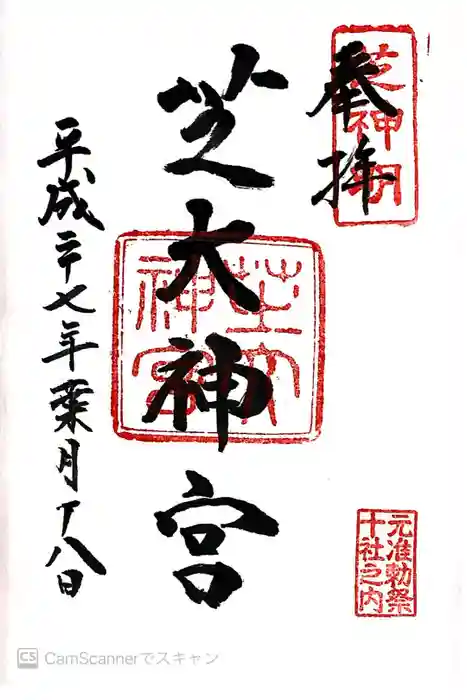 奉拝
芝神明
芝大神宮
芝大
神宮
平成二十七年葉月十八日
元准勅祭
十社之内
CS CamScannerでスキャン